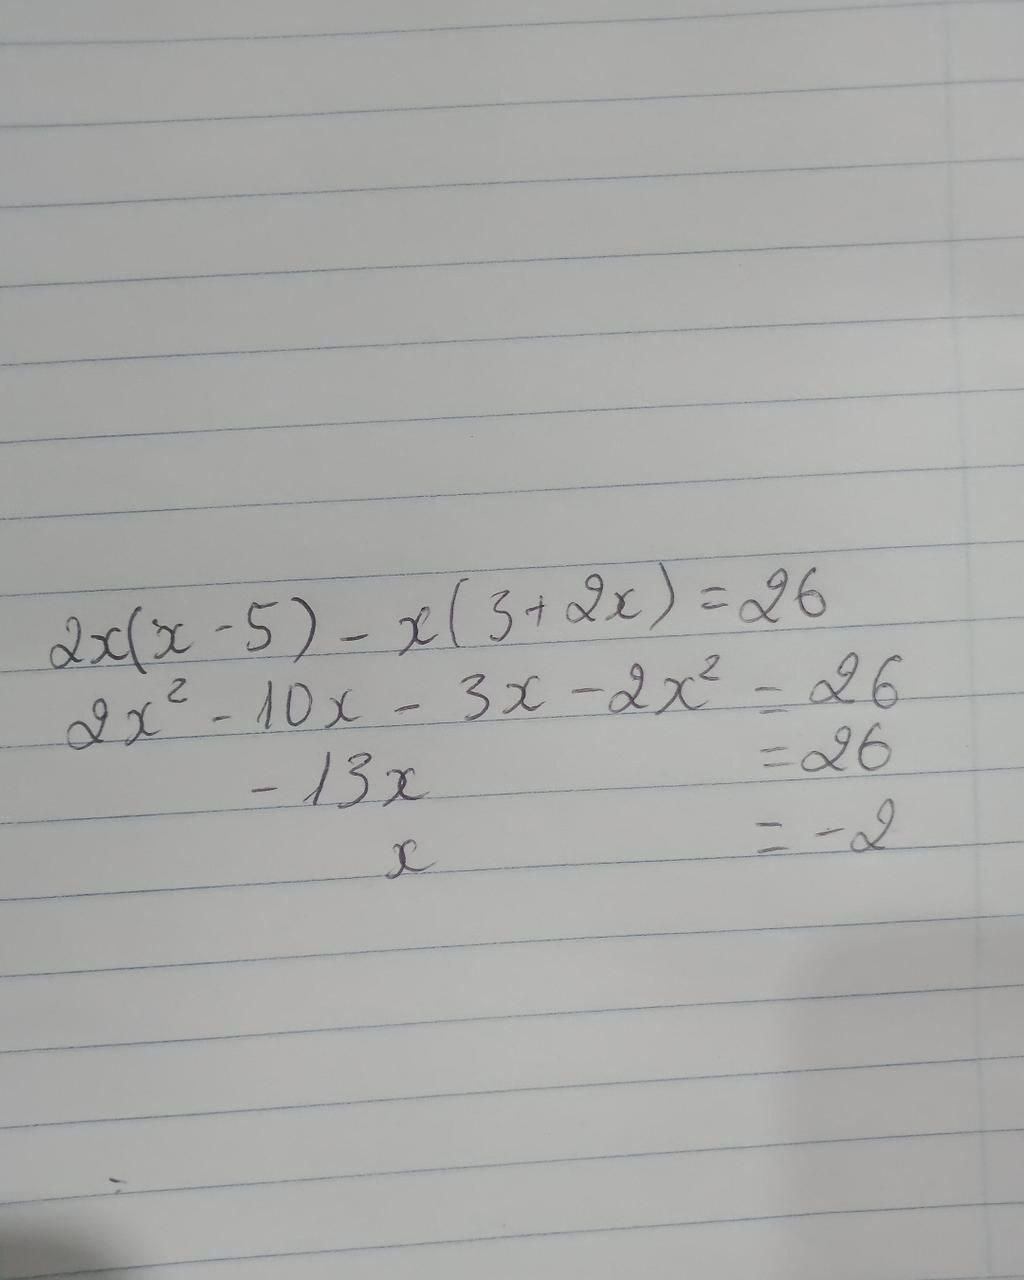 2x(x-5) - x(3+2x) = 26
2x² - 10x - 3x - 2x² = 26
- 13x = 26
x = -2